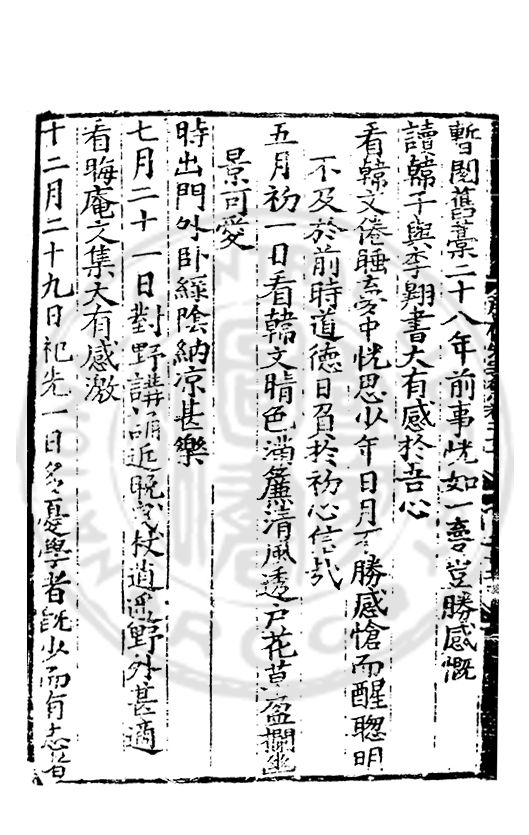 暫閱舊藁二十八年前事恍如一夢豈勝感慨
讀韓子與李翺書大有感於吾心
看韓文倦睡玄窓中恍思少年日月不勝感愴而醒聰明
不及於前時道德日負於初心信哉
五月初一日看韓文晴色滿簾清風透戶花草盈欄
景可愛
時出門外卧綠陰納凉甚樂
七月二十一日對野講誦近晚曳杖逍遙野外甚適
看晦庵文集大有感激
十二月二十九日祀先一日多憂學者既少而有志者